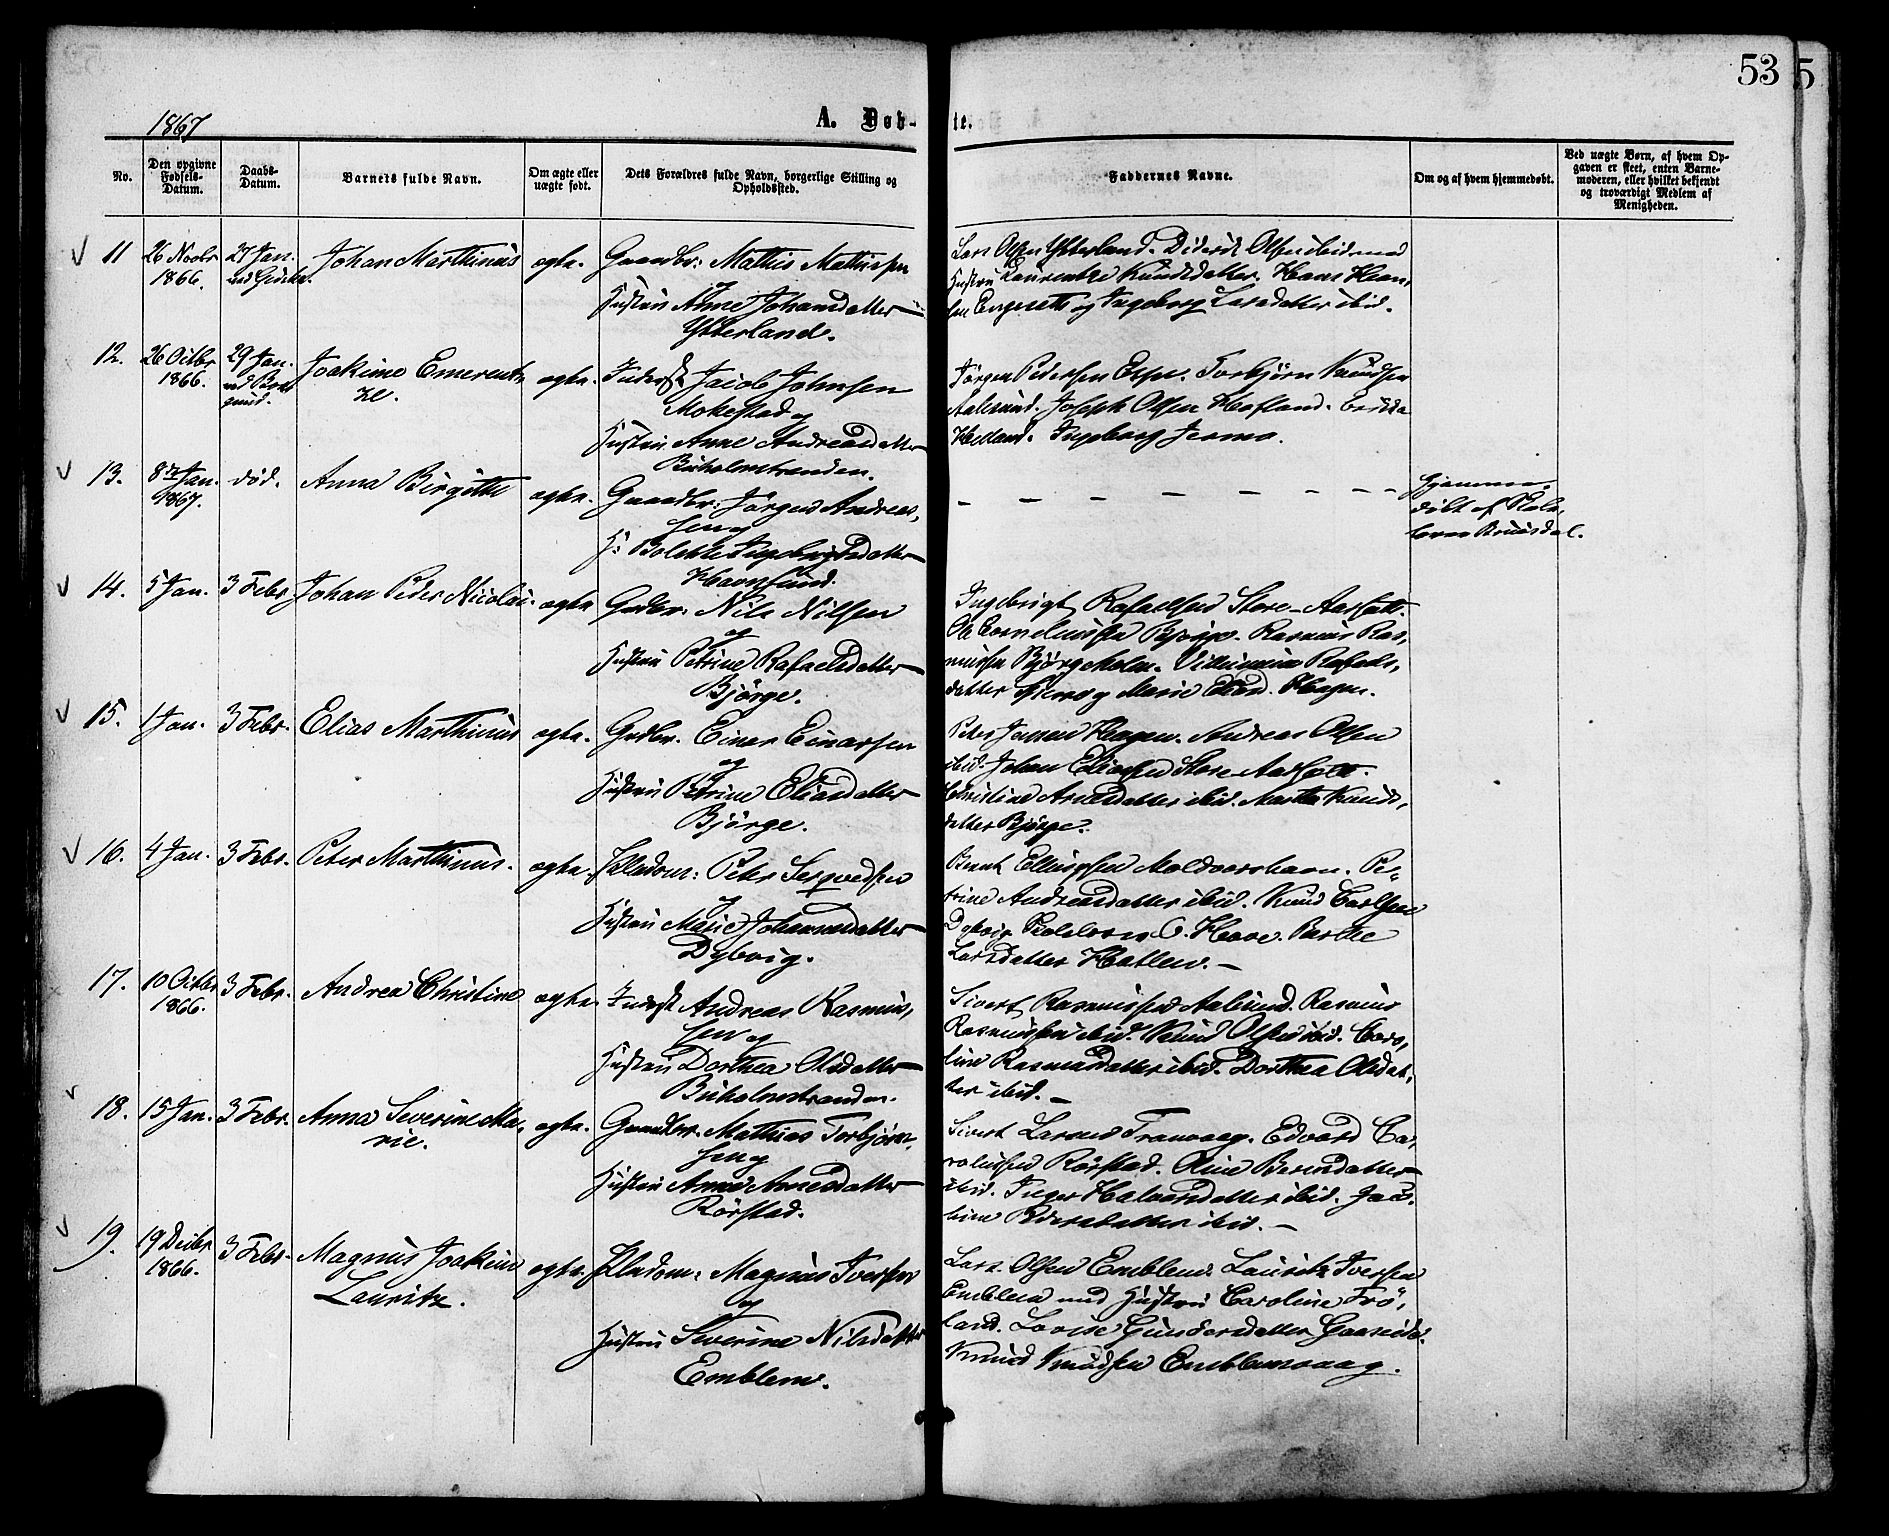 53 5
1867
A. Døb- te.
No.
Den opgivne Fødsels-Datum.
Daabs-Datum.
Barnets fulde Navn.
Om ægte eller uægte født.
Dets Forældres fulde Navn, borgerlige Stilling og Opholdssted.
Faddernes Navne.
Om og af hvem hjemmedøbt.
Ved uægte Børn, af hvem Opgaven er skeet, enten Barnemoderen, eller hvilket bekjendt og troværdigt Medlem af Menigheden.
11
26 Novbr
1866.
27 Jan.
ved Giske.
Johan Marthinus
ægte.
Gaardbr: Mathis Mathissen
Hustru Anne Johansdatter
Ytterland.
Lars Olsen Ytterland. Diderik Olsen ibid med
Hustru Laurentze Knudsdatter. Hans Han,
sen Engesett og Ingeborg Larsdatter ibid.
12.
26 Octbr
1866.
29 Jan.
ved Bor
gund.
Joakime Emerent,
ze.
ægte.
Inderst Jacob Johnsen
Mokestad og
Hustru Anne Andreasdatter
Buholmstranden.
Jörgen Pedersen Espe. Torbjörn Knudsen
Aalesund. Joseph Olsen Hofland.
Helland. Ingeborg
13.
8de Jan.
1867.
død.
Anna Birgitte
ægte.
Gaardbr: Jörgen Andreas,
sen og
H: Bolette Ingebrigtsdatter
Havnsund.
— — — — — — — —
Hjemme,
döbt af
14.
5 Jan.
3 Febr
Johan Peder Nicolai.
ægte
Grdbr. Nils Nilsen
og
Hustru Petrine Rafaelsdatter
Bjørge.
Ingebrigt Rafaelsen Store-Aarsett.
Ole Corneliussen Bjørge. Rasmus Ras,
mussen Bjørgeholm. Rafaels,
datter og Marie Hagen.
15.
1 Jan.
3 Febr.
Elias Marthinus
ægte.
Grdbr. Einar Einarsen
og
Hustru Petrine Eliasdatter
Bjørge.
Peter Jansen Hagen. Andreas Olsen
ibid. Johan Eliassen Store-Aarsett.
Christine Arnesdatter ibid. Martha Knuds,
datter Bjørge.
16.
4 Jan.
3 Febr.
Peter Marthinus.
ægte.
Pladsm: Peter
Hustru Marie Johannesdatter
Dybvig.
Bernt Ellingsen Moldværshavn. Pe-
trine Andreasdatter ibid. Knud Carlsen
Dybvig O. Hove.
Larsdatter Hatlen. —
17.
10 Octbr
1866.
3 Febr.
Andrea Christine
ægte
Inderst Andreas Rasmus,
sen og
Hustru Dorthea Olsdatter
Buholmstranden.
Sivert Rasmussen Aalesund. Rasmus
Rasmussen ibid. Knud Olsen ibid. Caro,
line Rasmusdatter ibid. Dorthea Olsdat,
ter ibid. —
18.
15 Jan.
3 Febr.
Anna Severine Ma,
rie.
ægte.
Gaardbr. Mathias Torbjørn,
sen og
Hustru Anne Arnesdatter
Rørstad.
Sivert Larsen Tranvaag. Edvard Ca,
rolussen Rørstad. Oline Berntsdatter
ibid. Inger Halvorsdatter ibid. Jaco,
bine Pedersdatter ibid. —
19.
19 Decbr
1866.
3 Febr.
Magnus Joakim
Lauritz.
ægte.
Pladsm: Magnus Iversen
og
Hustru Severine Nilsdatter
Emblem.
Lars Olsen Emblem. Lauritz Iversen
Emblem med Hustru Caroline Frö,
land. Lovise Gundersdatter Gaaseide.
Knud Knudsen Emblemsvaag.